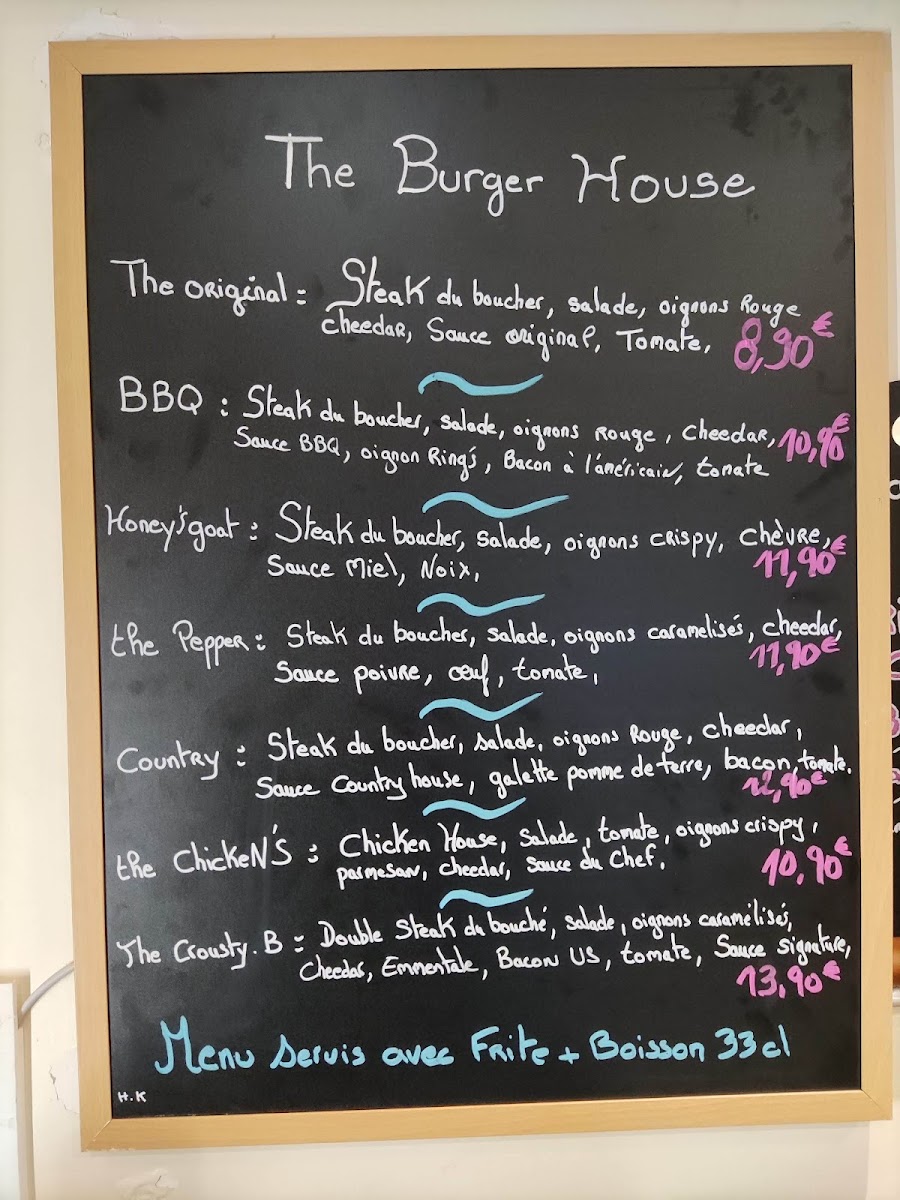 The Burger House
The original : Steak du boucher, salade, oignons Rouge
cheedar, Sauce original, Tomate, 8,90€
BBQ : Steak du boucher, salade, oignons Rouge, Cheedar, 10,90€
Sauce BBQ, oignon Ring's, Bacon à l'américain, tomate
Honey's goat : Steak du boucher, salade, oignons crispy, chèvre,
Sauce Miel, Noix, 11,90€
the Pepper : Steak du boucher, salade, oignons caramelisés, cheedar,
Sauce poivre, œuf, tomate, 11,90€
Country : Steak du boucher, salade, oignons Rouge, cheedar,
Sauce Country house, galette pomme de terre, bacon, tomate.
12,90€
the ChickeN'S : Chicken House, salade, tomate, oignons crispy,
parmesan, cheedar, sauce du Chef, 10,90€
The Crousty.B : Double Steak du bouché, salade, oignons caramélisés,
Cheedar, Emmentale, Bacon US, tomate, Sauce signature,
13,90€
Menu servis avec Frite + Boisson 33cl
H.K